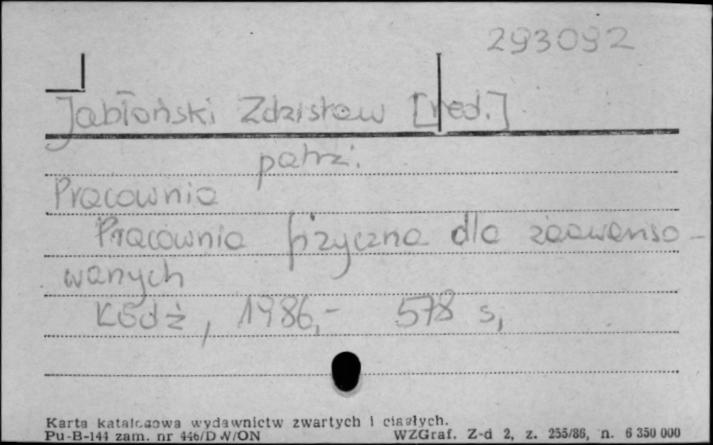 293092
Jabłoński Zdzisław [red.]
patrz:
Pracownia
Pracownia fizyczna dla zaawanso-
wanych
Łódź, 1986,- 578 s,
Karta katalogowa wydawnictw zwartych i ciągłych.
Pu-B-144 zam. nr 446/D W/ON WZGraf. Z-d 2, z. 255/86, n. 6 350 000